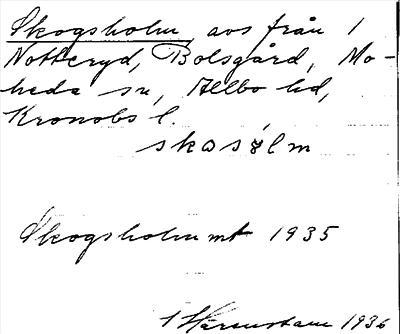 Skogsholm, avs från 1
Notteryd, Bolsgård, Mo-
heda sn, Allbo hd,
Kronobs l.
skosølm
Skogsholm mt 1935
1 Härenstam 1936